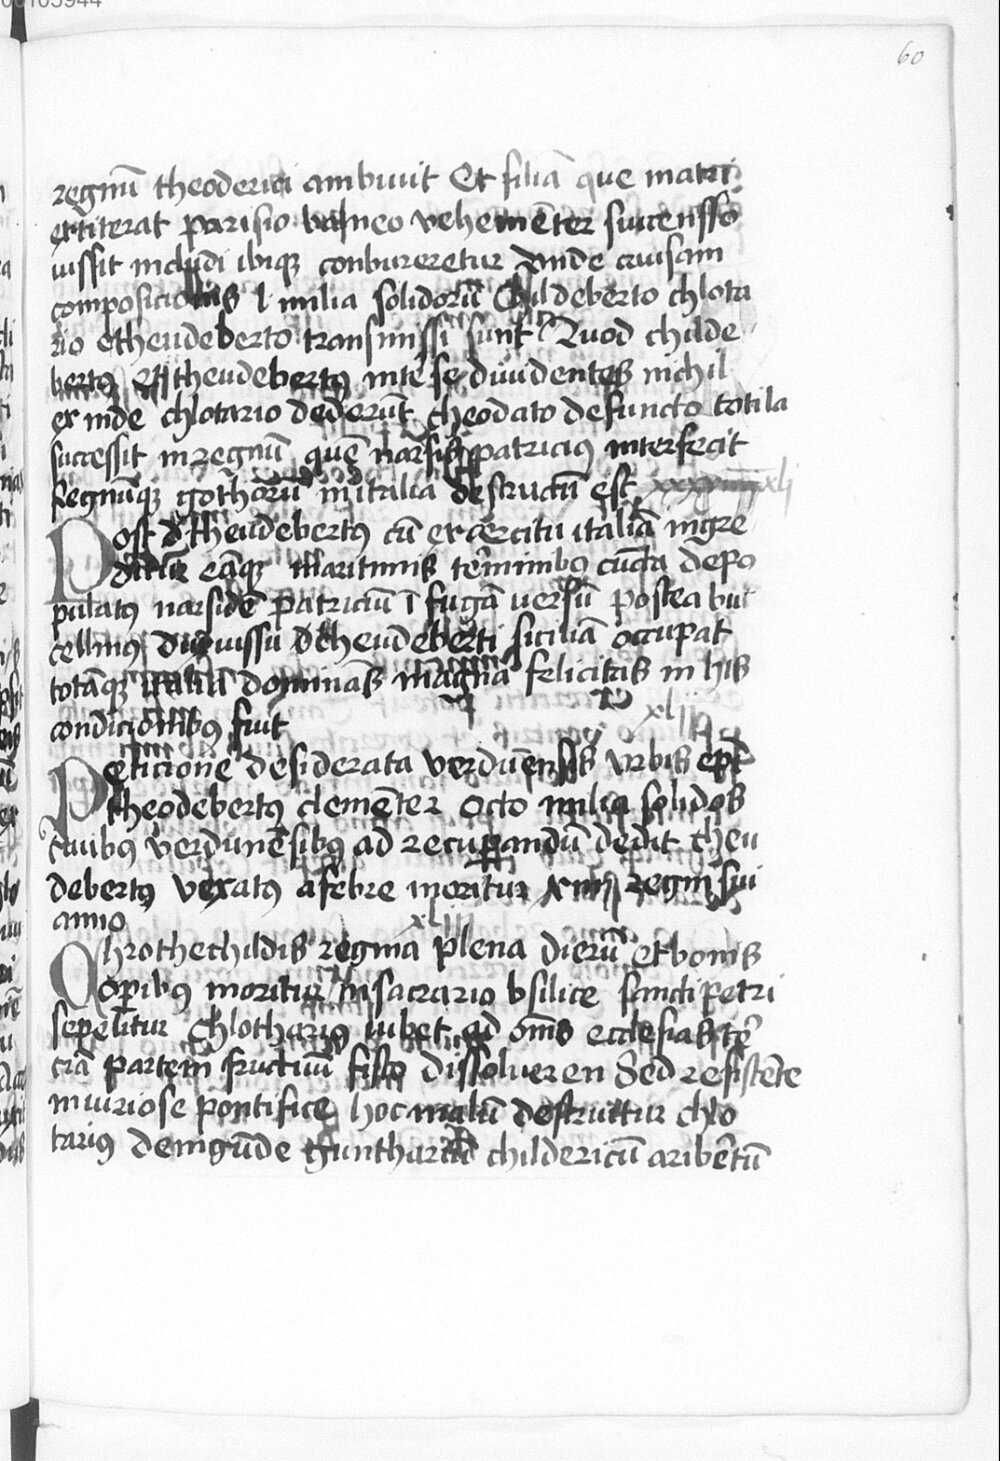 60
regnū theoderici ambiuit Et filiā que matri
extiterat parisio balneo vehemēter succensso
iussit includi ibiqȝ conbureretur Vnde cuiusam
composicionis l milia solidorū Childeberto chlota
rio etheudeberto transmissi sunt Quod childe
bertꝯ Et theudebertꝯ inter se diuidentes nichil
ex inde chlotario dederūt theodato defuncto totila
successit in regnū quē narsis patricius interfecit
Regnūqȝ gothorū in itilia destructū est xli
Post d theudebertꝯ cū exercitu italiā ingre
ditur eāqȝ maritimis terminibꝯ cūcta depo
pulatꝯ narsidē patriciū ī fugā uersū postea buc
cellinꝯ dux iussu dtheudeberti siciliā occupat
totāqȝ italiā dominās magna felicitas in his
condicionibꝯ fuit xlii
Peticione desiderata verduēnsis vrbis epī
theodebertꝯ clemēter octo milia solidos
ciuibꝯ verdunēsibꝯ ad recuperandū dedit theu
debertꝯ vexatꝯ a febre moritur xiiii regni sui
anno xliii
Chrothechildis regina plena dierū et bonis
operibꝯ moritur in sacrario bsilice sancti petri
sepelitur Chlotharius iubet ad om̄s ecclesias ter
ciā partem fructuū fisco dissolueren Sed resistēte
iniuriose pontifice hoc malū destruitur chlo
tarius deingūde guntharium childericū aribertū